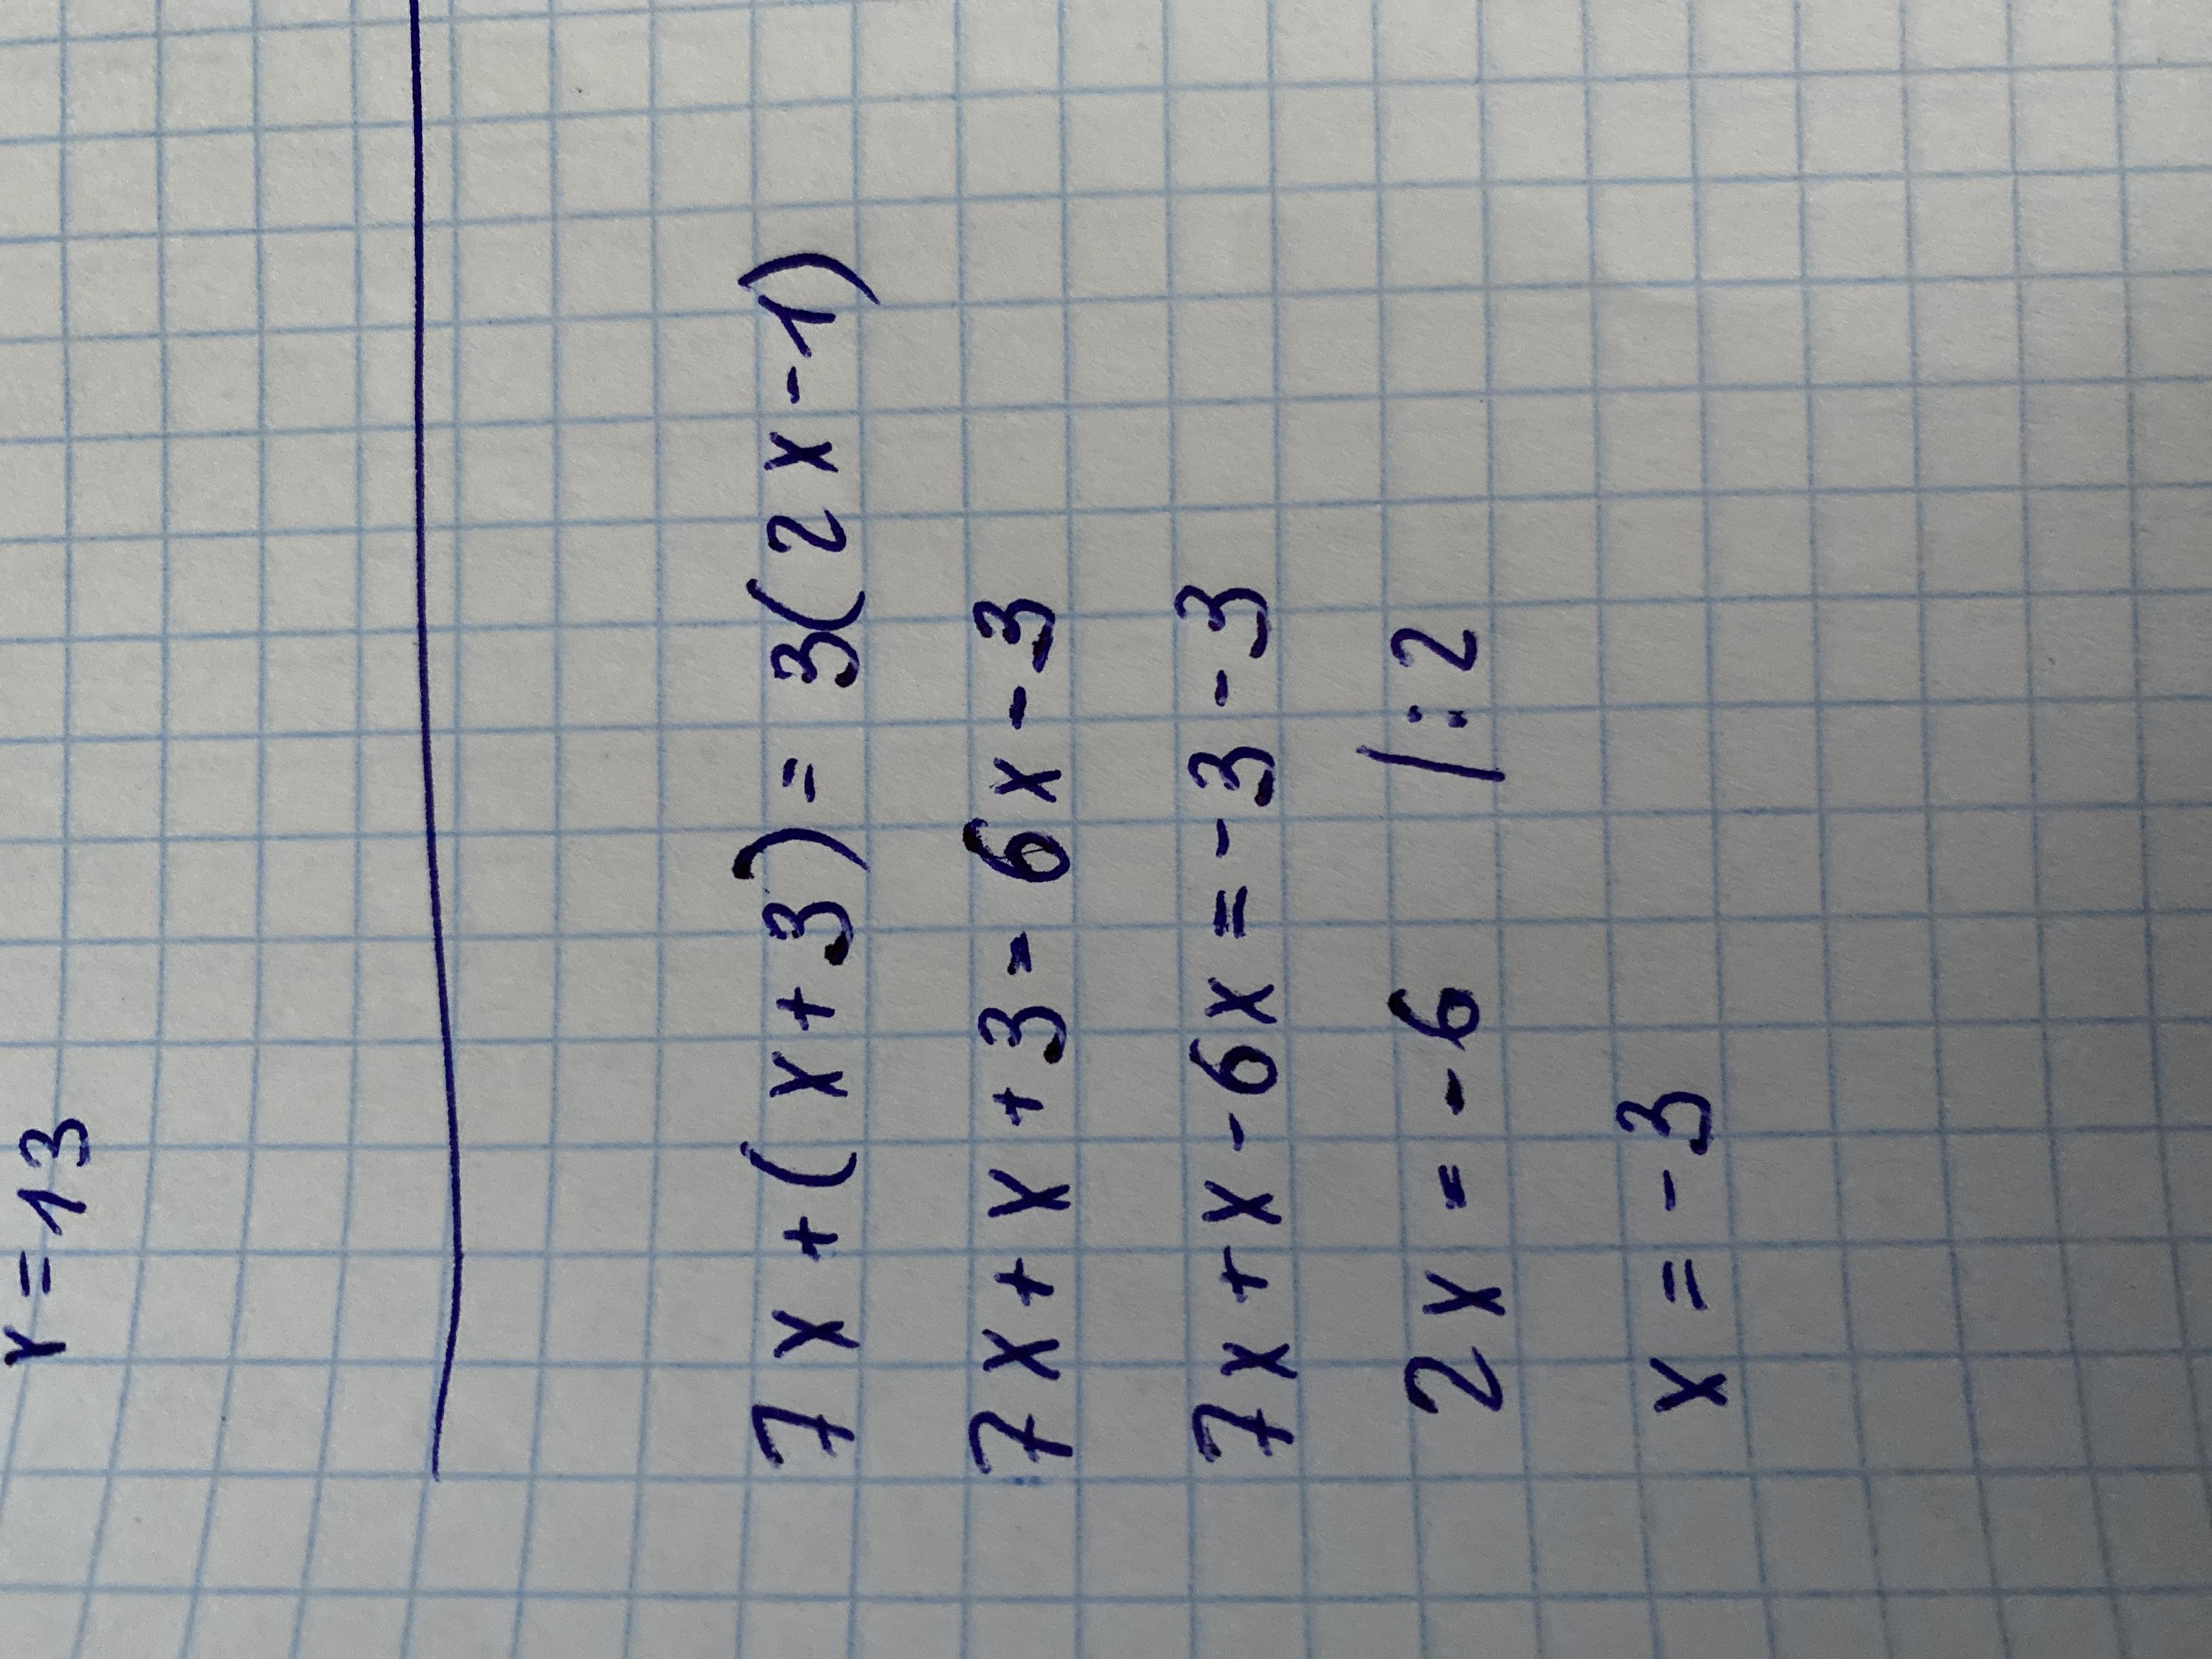 x=13
7x+(x+3)=3(2x-1)
7x+x+3=6x-3
7x+x-6x=-3-3
2x=-6 /:2
x=-3